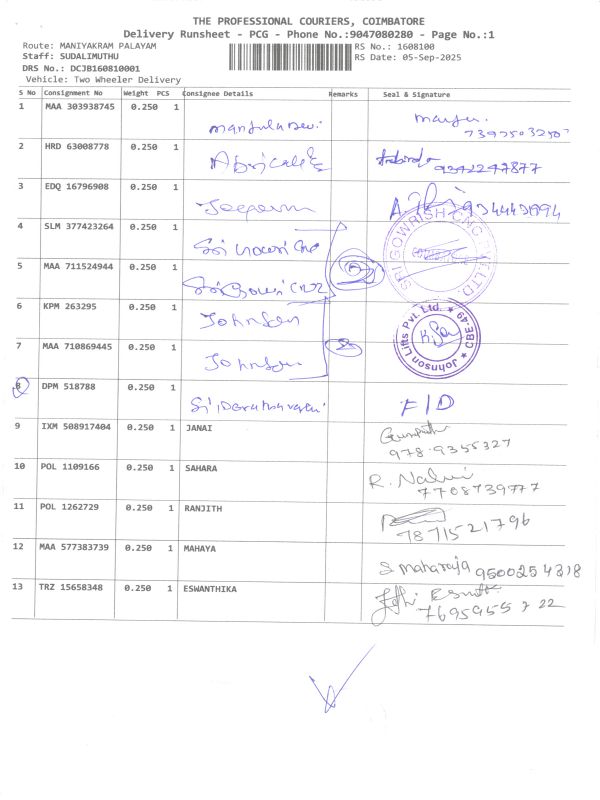 THE PROFESSIONAL COURIERS, COIMBATORE
Delivery Runsheet - PCG - Phone No.:9047080280 - Page No.:1
Route: MANIYAKRAM PALAYAM
RS No.: 1608100
Staff: SUDALIMUTHU
RS Date: 05-Sep-2025
DRS No.: DCJB160810001
Vehicle: Two Wheeler Delivery
S No Consignment No Weight PCS Consignee Details Remarks Seal & Signature
1 MAA 303938745 0.250 1 Manjula Devi
7397503250
2 HRD 63008778 0.250 1
9342247877
3 EDQ 16796908 0.250 1
9344431994
4 SLM 377423264 0.250 1 Sri Gowri CNC
SRI GOWRISH CNC PVT LTD.
5 MAA 711524944 0.250 1 Sri Gowri CNC
6 KPM 263295 0.250 1 Johnson
Johnson Lifts Pvt. Ltd. CBE
7 MAA 710869445 0.250 1 Johnson
8 DPM 518788 0.250 1
F/D
9 IXM 508917404 0.250 1 JANAI
978-9355327
10 POL 1109166 0.250 1 SAHARA R. Nalini
7708739777
11 POL 1262729 0.250 1 RANJITH
7871521796
12 MAA 577383739 0.250 1 MAHAYA
S maharaja 9500254318
13 TRZ 15658348 0.250 1 ESWANTHIKA
7695955722